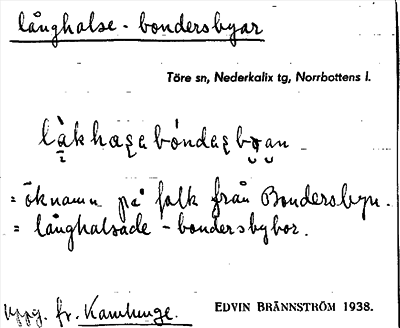 långhalse - bondersbyar
Töre sn, Nederkalix tg, Norrbottens l.
= öknamn på folk från Bondersbyn.
= långhalsade - bondersbybor.
Uppg. fr. Kamlunge. EDVIN BRÄNNSTRÖM 1938.